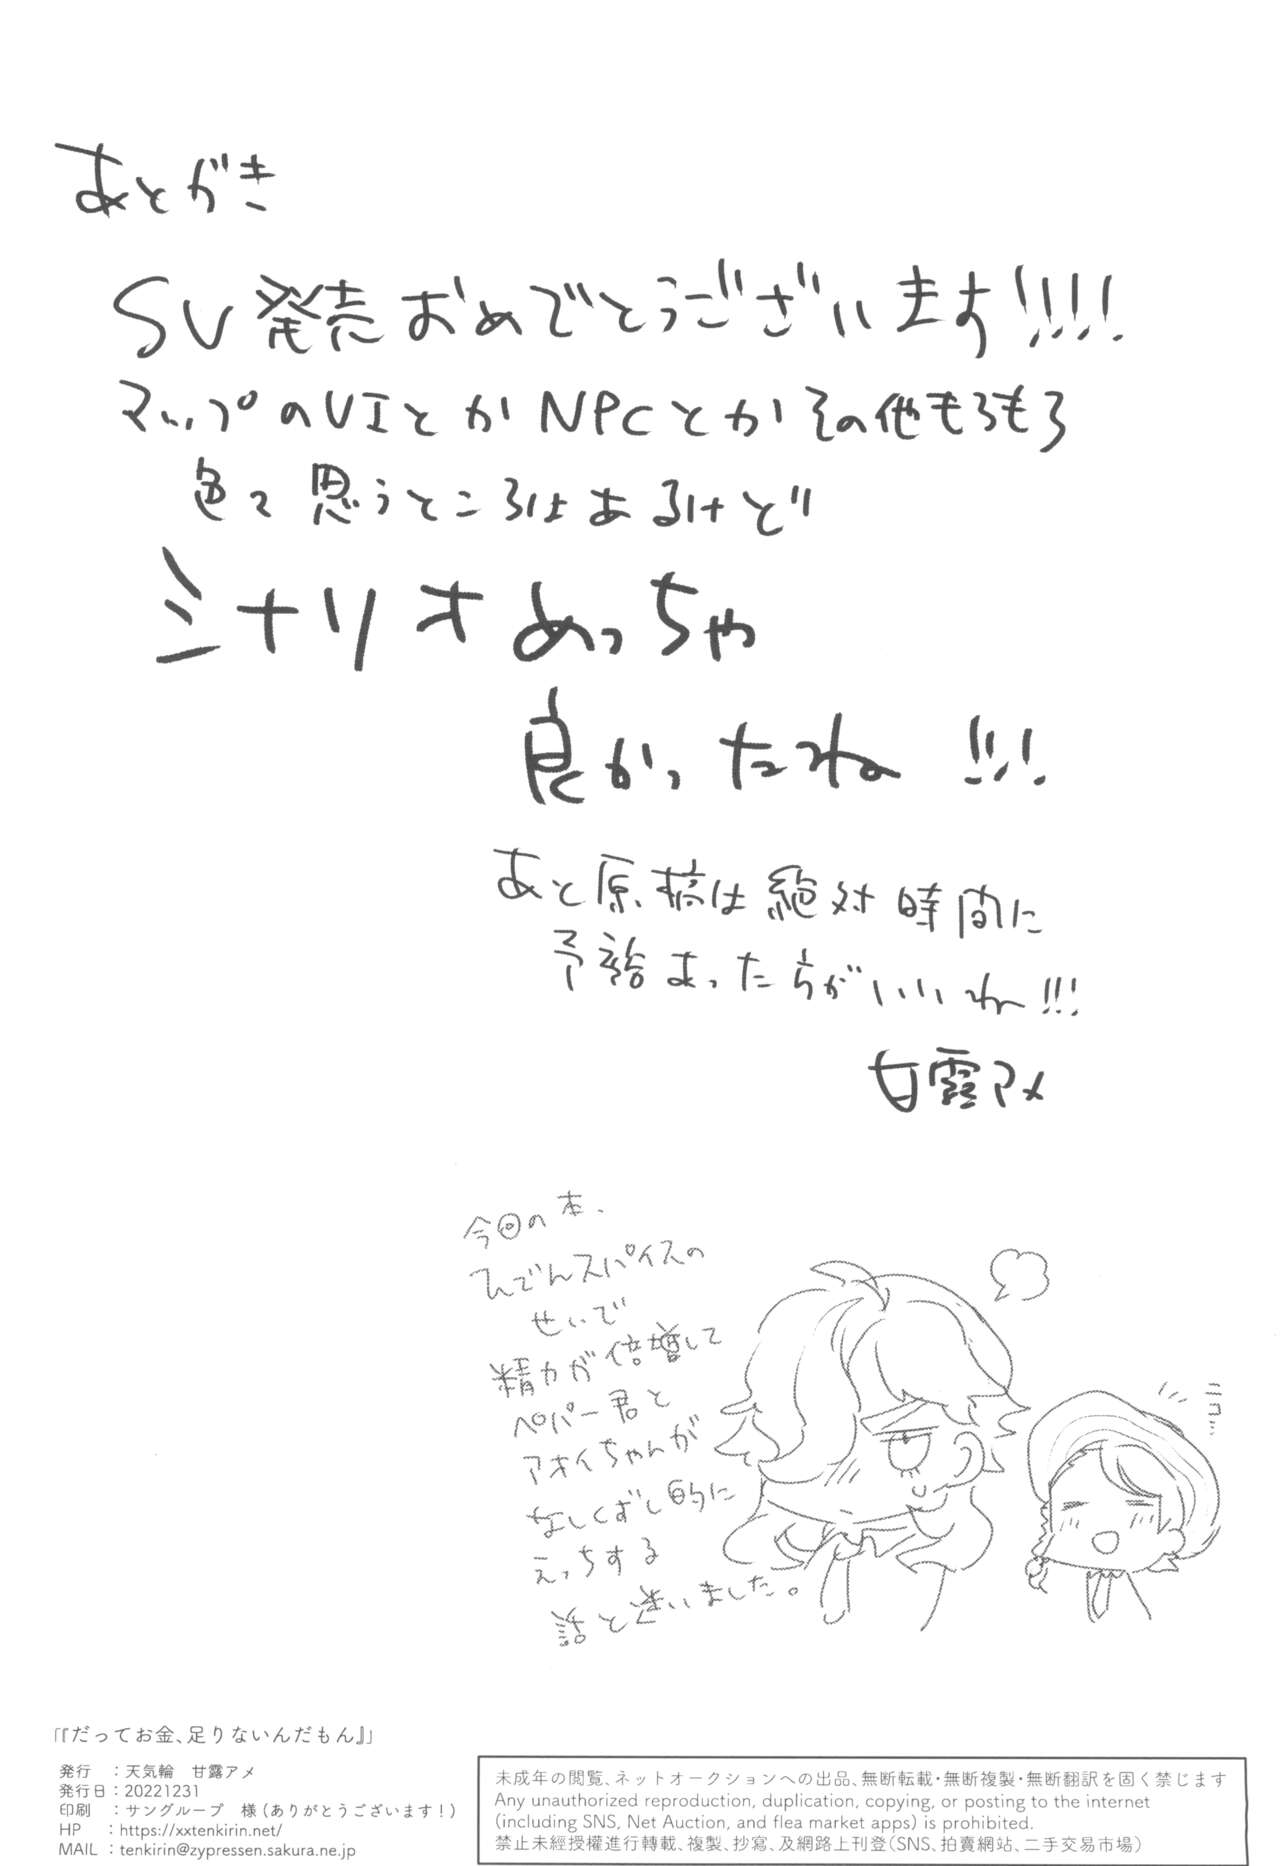 あとがき
SV発売おめでとうございます!!!!
マップのUIとかNPCとかその他もろもろ
色々思うところはあるけど
シナリオめっちゃ
良かったね!!!
あと原稿は絶対時間に
予裕あった方がいいね!!!
甘露アメ
今回の本、
ひでんスパイスの
せいで
精力が倍増して
ペパー君と
アオイちゃんが
なしくずし的に
えっちする
話と迷いました。
ニコ…
「『だってお金、足りないんだもん』」
発行 :天気輪 甘露アメ
発行日:20221231
印刷 :サングループ 様(ありがとうございます!)
HP :https://xxtenkirin.net/
MAIL :tenkirin@zypressen.sakura.ne.jp
未成年の閲覧、ネットオークションへの出品、無断転載・無断複製・無断翻訳を固く禁じます
Any unauthorized reproduction, duplication, copying, or posting to the internet
(including SNS, Net Auction, and flea market apps) is prohibited.
禁止未經授權進行轉載、複製、抄寫、及網路上刊登(SNS、拍賣網站、二手交易市場)